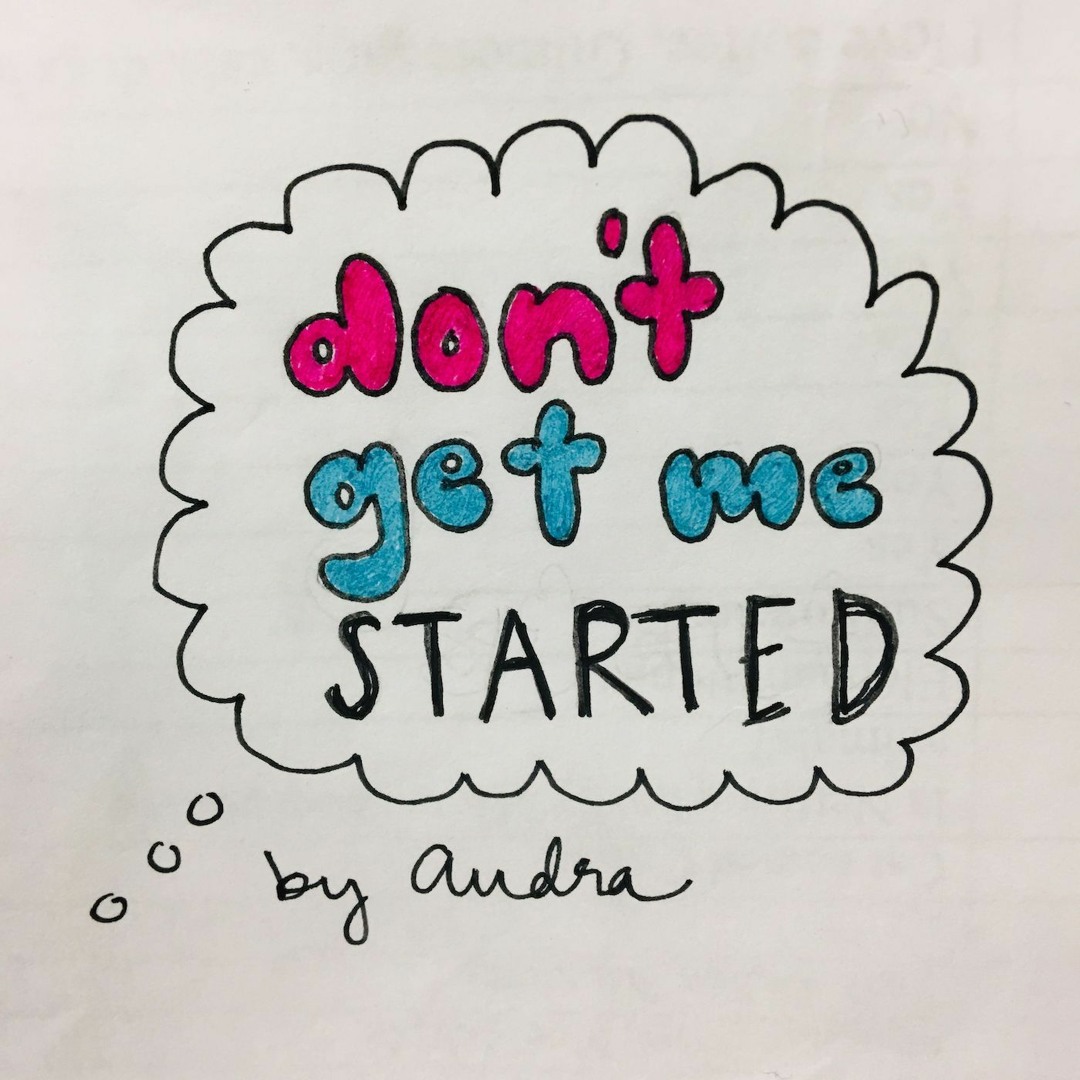 don't
get me
STARTED
by audra